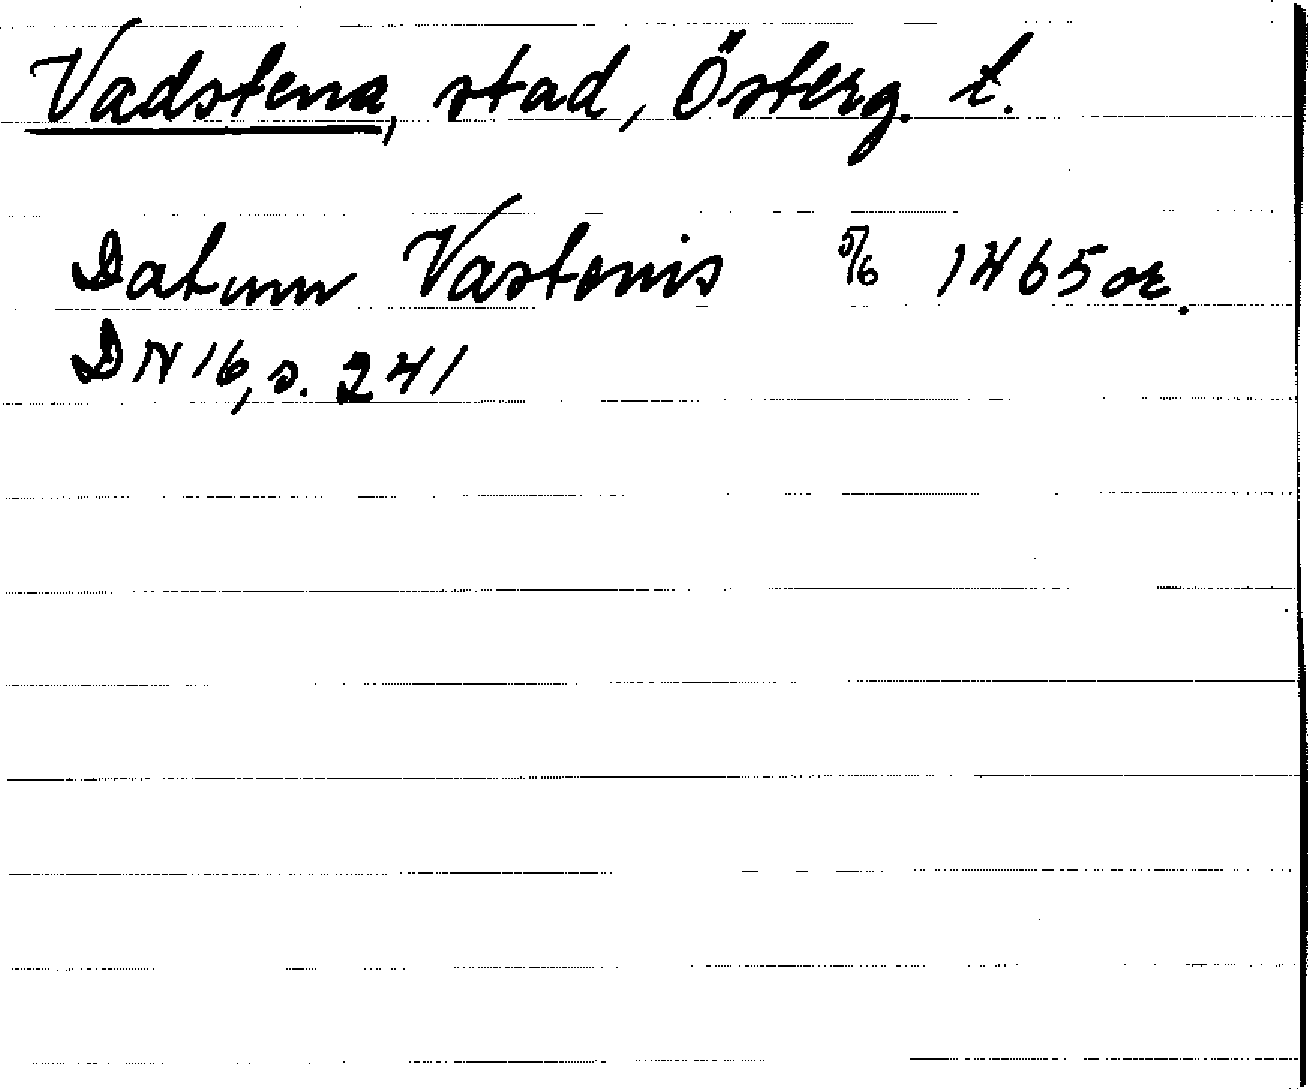 Vadstena, stad, Österg. l.
Datum Vastenis 5/6 1465 or.
DN 16, s. 241